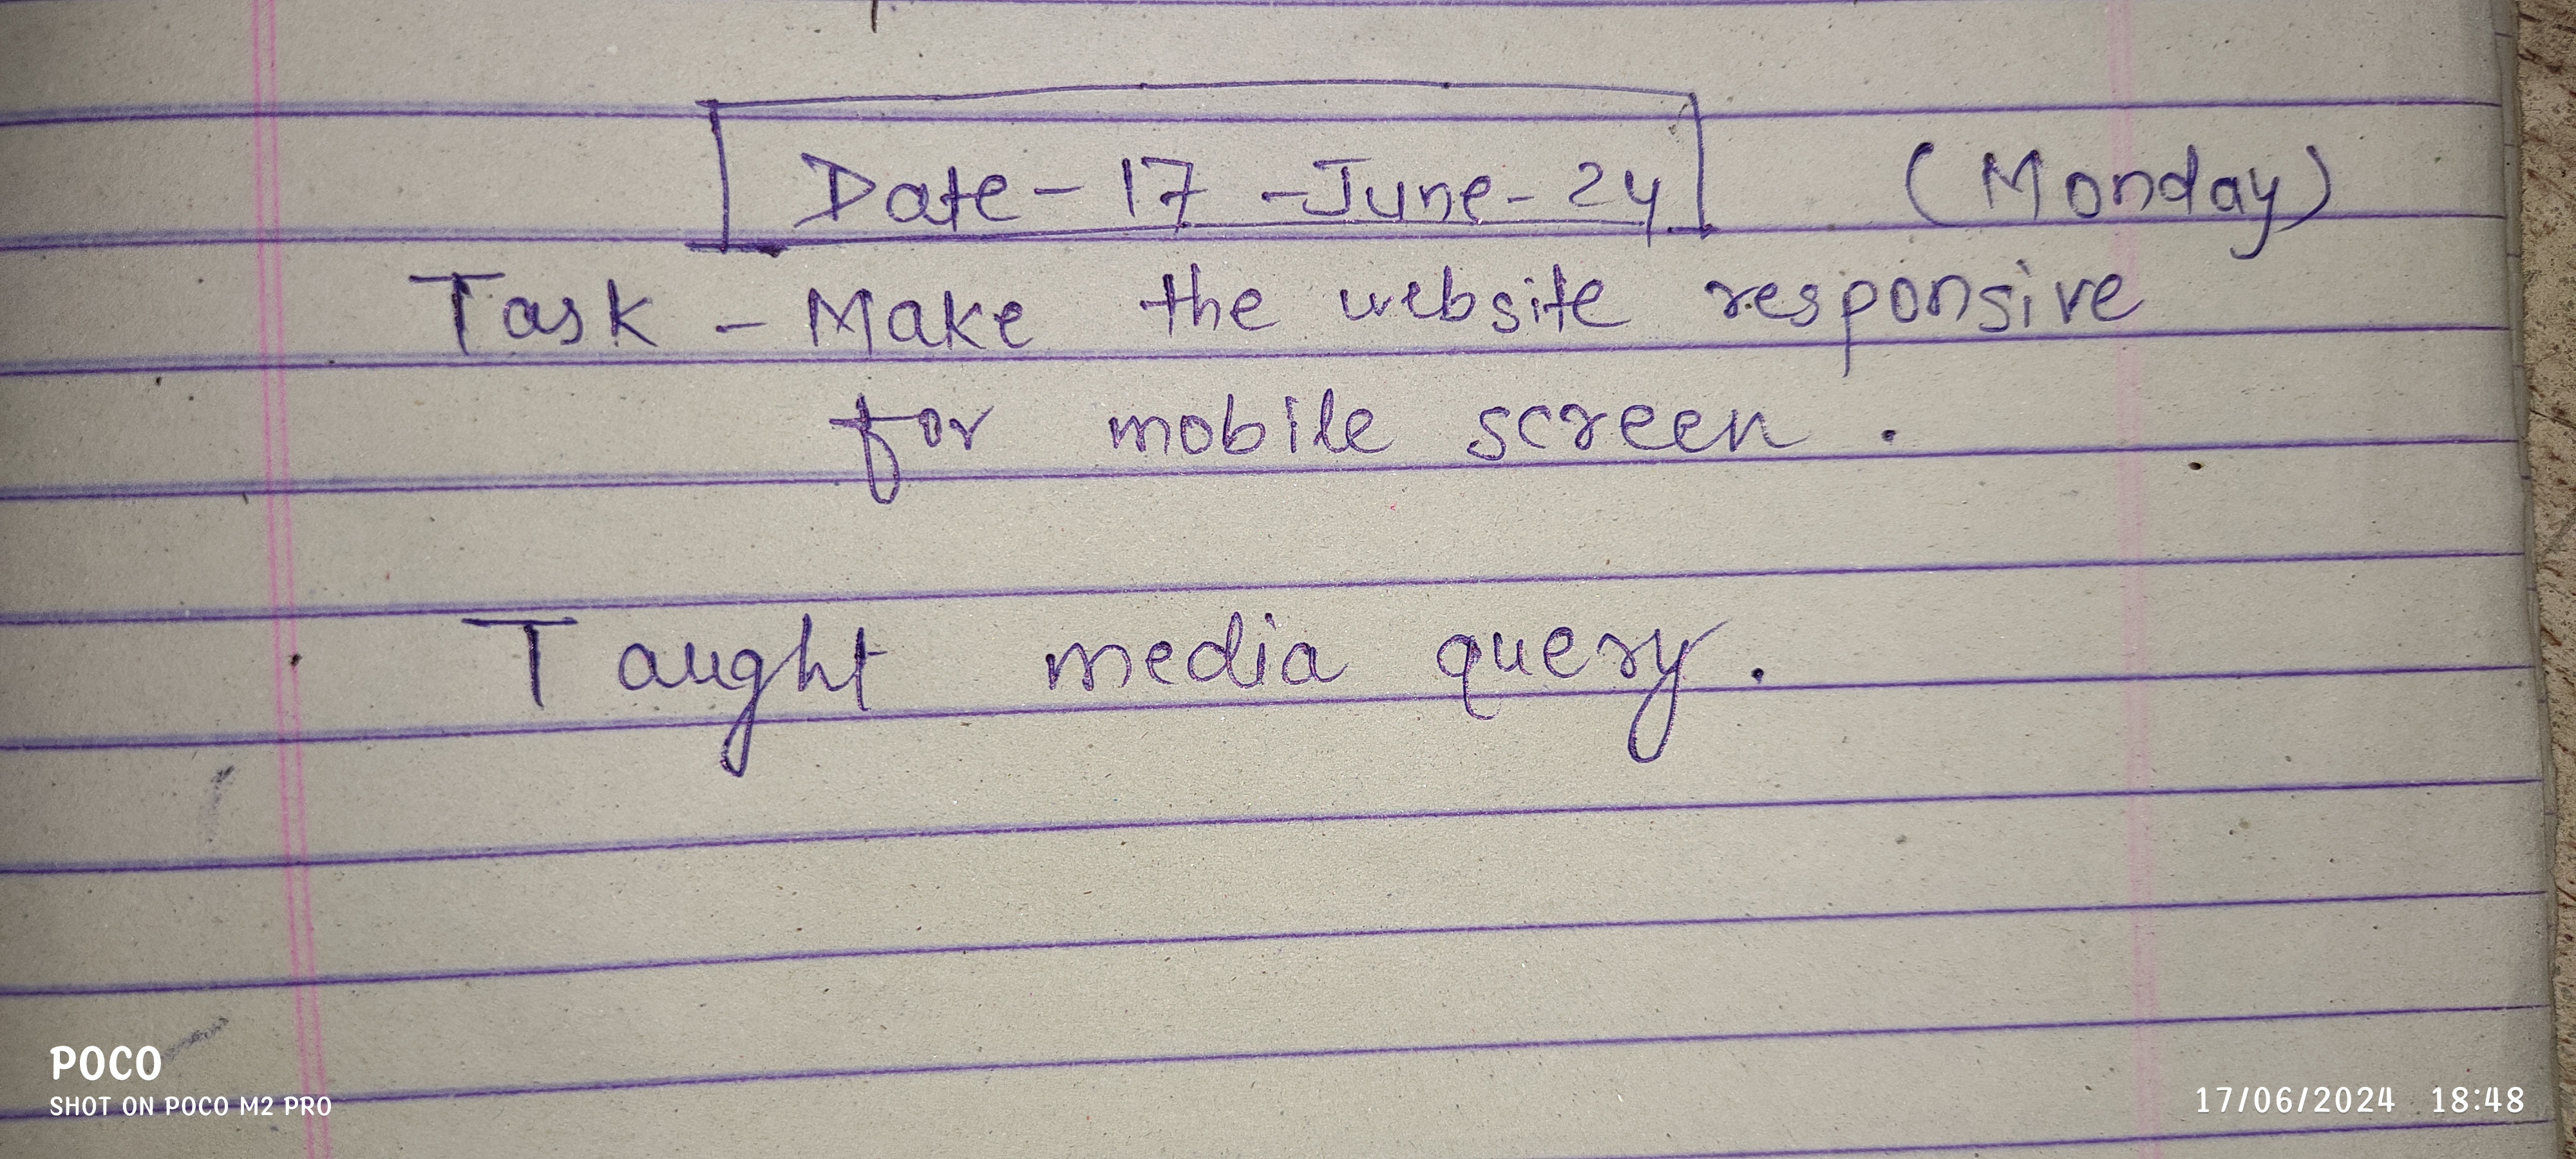 Date - 17 - June - 24 (Monday)
Task - Make the website responsive
for mobile screen .
Taught media query .
POCO
SHOT ON POCO M2 PRO
17/06/2024 18:48